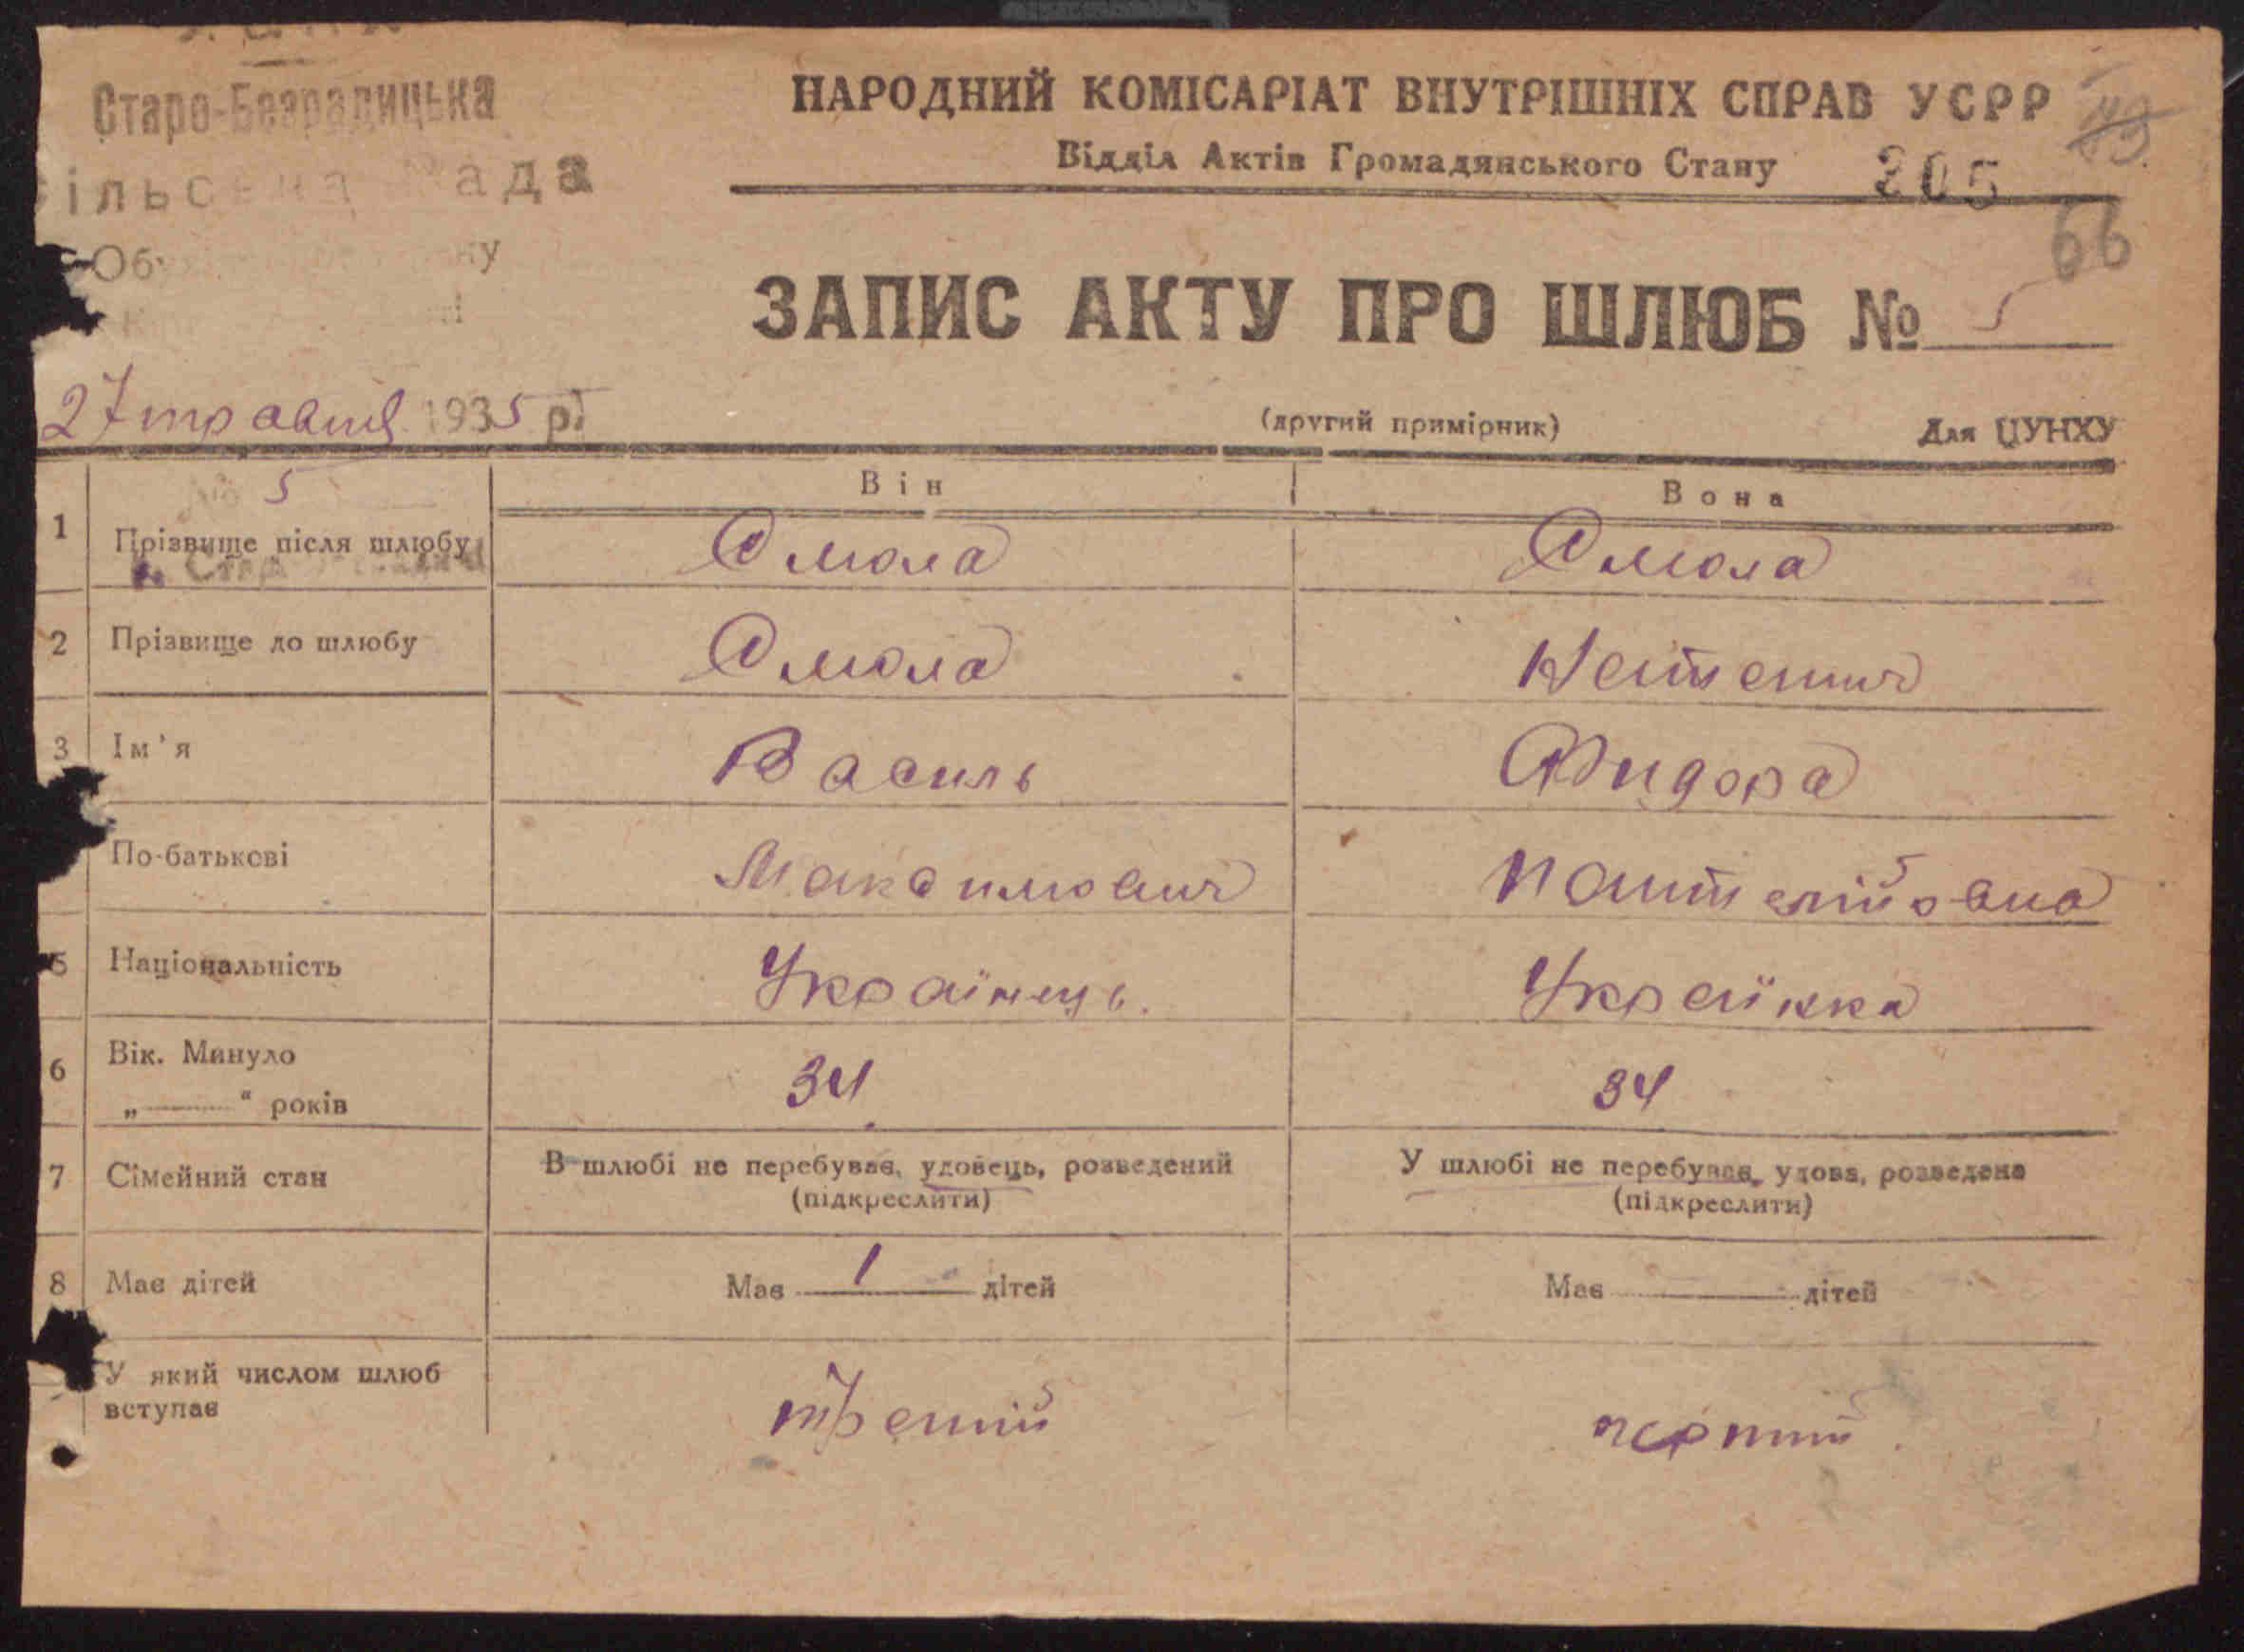 Старо-Безрадицька
ільська Рада
НАРОДНИЙ КОМІСАРІАТ ВНУТРІШНІХ СПРАВ УСРР
Відділ Актів Громадянського Стану 205
66
ЗАПИС АКТУ ПРО ШЛЮБ № 5
27 травня 1935 р.
(другий примірник) Для ЦУНХУ
№ 5
Він Вона
1 Прізвище після шлюбу Смола Смола
2 Прізвище до шлюбу Смола
3 Ім'я Василь Фидора
По-батькові Максимович Пантелійовна
5 Національність Українець. Українка
6 Вік. Минуло
„ “ років 34 34
7 Сімейний стан В шлюбі не перебуває, удовець, розведений У шлюбі не перебуває, удова, розведена
(підкреслити) (підкреслити)
8 Має дітей Має 1 дітей Має дітей
У який числом шлюб
вступає третій перший.